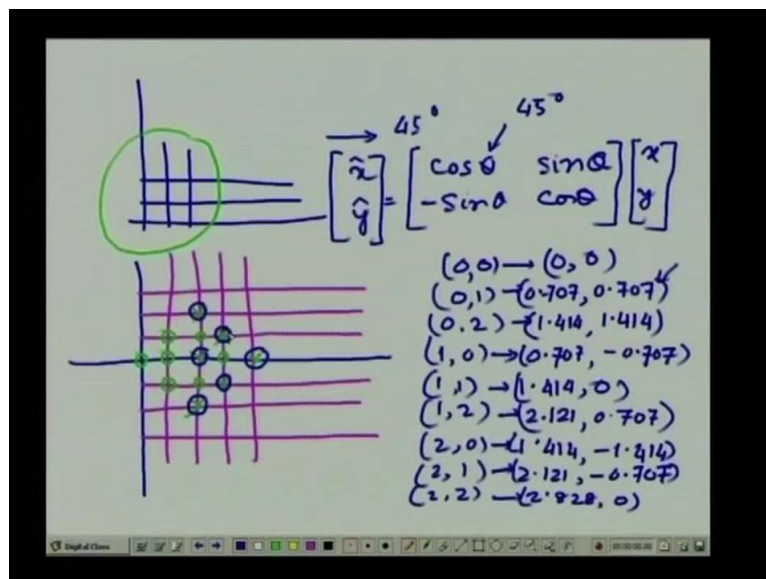 45° 45°
[x̂ ŷ] = [cosθ sinθ -sinθ cosθ] [x y]
(0,0)→(0,0)
(0,1)→(0.707,0.707)
(0,2)→(1.414,1.414)
(1,0)→(0.707,-0.707)
(1,1)→(1.414,0)
(1,2)→(2.121,0.707)
(2,0)→(1.414,-1.414)
(2,1)→(2.121,-0.707)
(2,2)→(2.828,0)
Digital Class